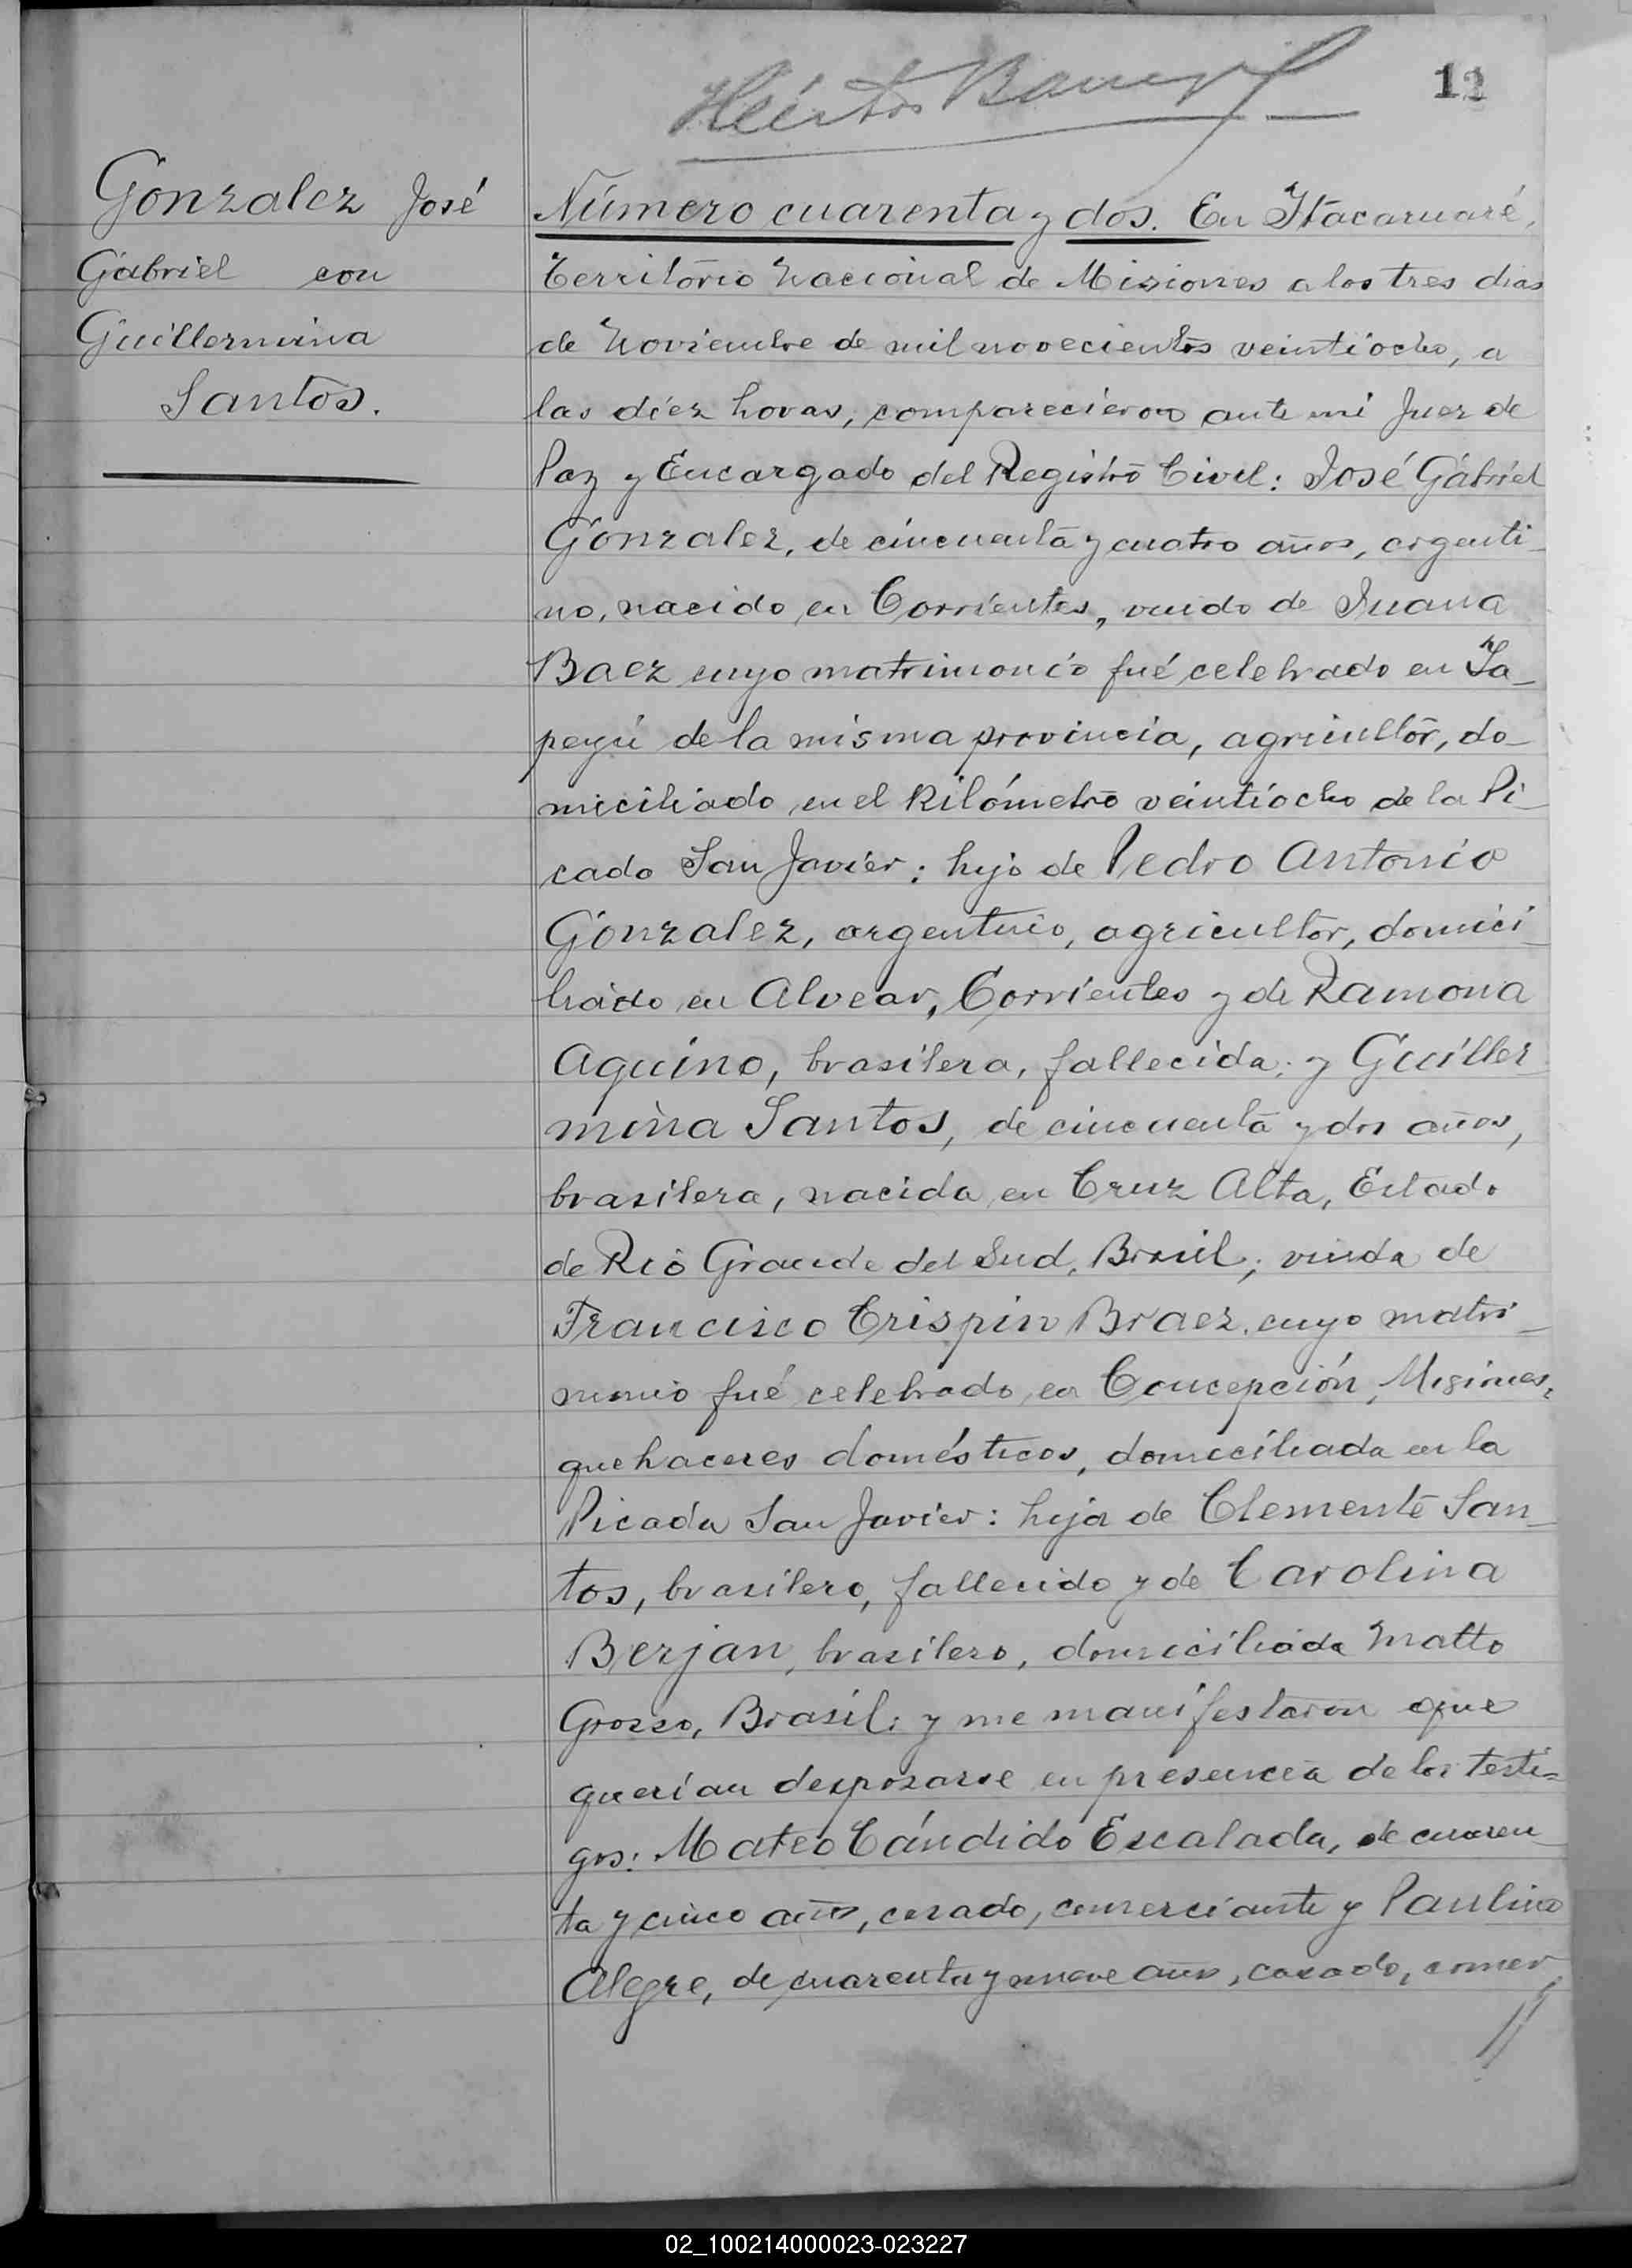 12
Gonzalez José
Gabriel con
Guillermina
Santos.
Número cuarenta y dos. En Itacaruaré,
Territorio Nacional de Misiones a los tres dias
de Noviembre de mil novecientos veintiocho, a
las diez horas, comparecieron ante mi Juez de
Paz y Encargado del Registro Civil: José Gabriel
Gonzalez, de cincuenta y cuatro años, argenti-
no, nacido en Corrientes, viudo de Juana
Baez cuyo matrimonio fué celebrado en Ya-
peyú de la misma provincia, agricultor, do-
miciliado en el Kilómetro veintiocho de la Pi-
cada San Javier: hijo de Pedro Antonio
Gonzalez, argentino, agricultor, domici-
liado en Alvear, Corrientes y de Ramona
Aquino, brasilera, fallecida; y Guiller
mina Santos, de cincuenta y dos años,
brasilera, nacida en Cruz Alta, Estado
de Rio Grande del Sud, Brasil; viuda de
Francisco Crispin Braez, cuyo matri-
monio fué celebrado en Concepción, Misiones,
quehaceres domésticos, domiciliada en la
Picada San Javier: hija de Clemente San-
tos, brasilero, fallecido y de Carolina
Berjan, brasilera, domiciliada Matto
Grosso, Brasil; y me manifestaron que
querían desposarse en presencia de los testi-
gos: Mateo Cándido Escalada, de cuaren-
ta y cinco años, casado, comerciante y Paulino
Alegre, de cuarenta y nueve años, casado, comer
02_100214000023-023227